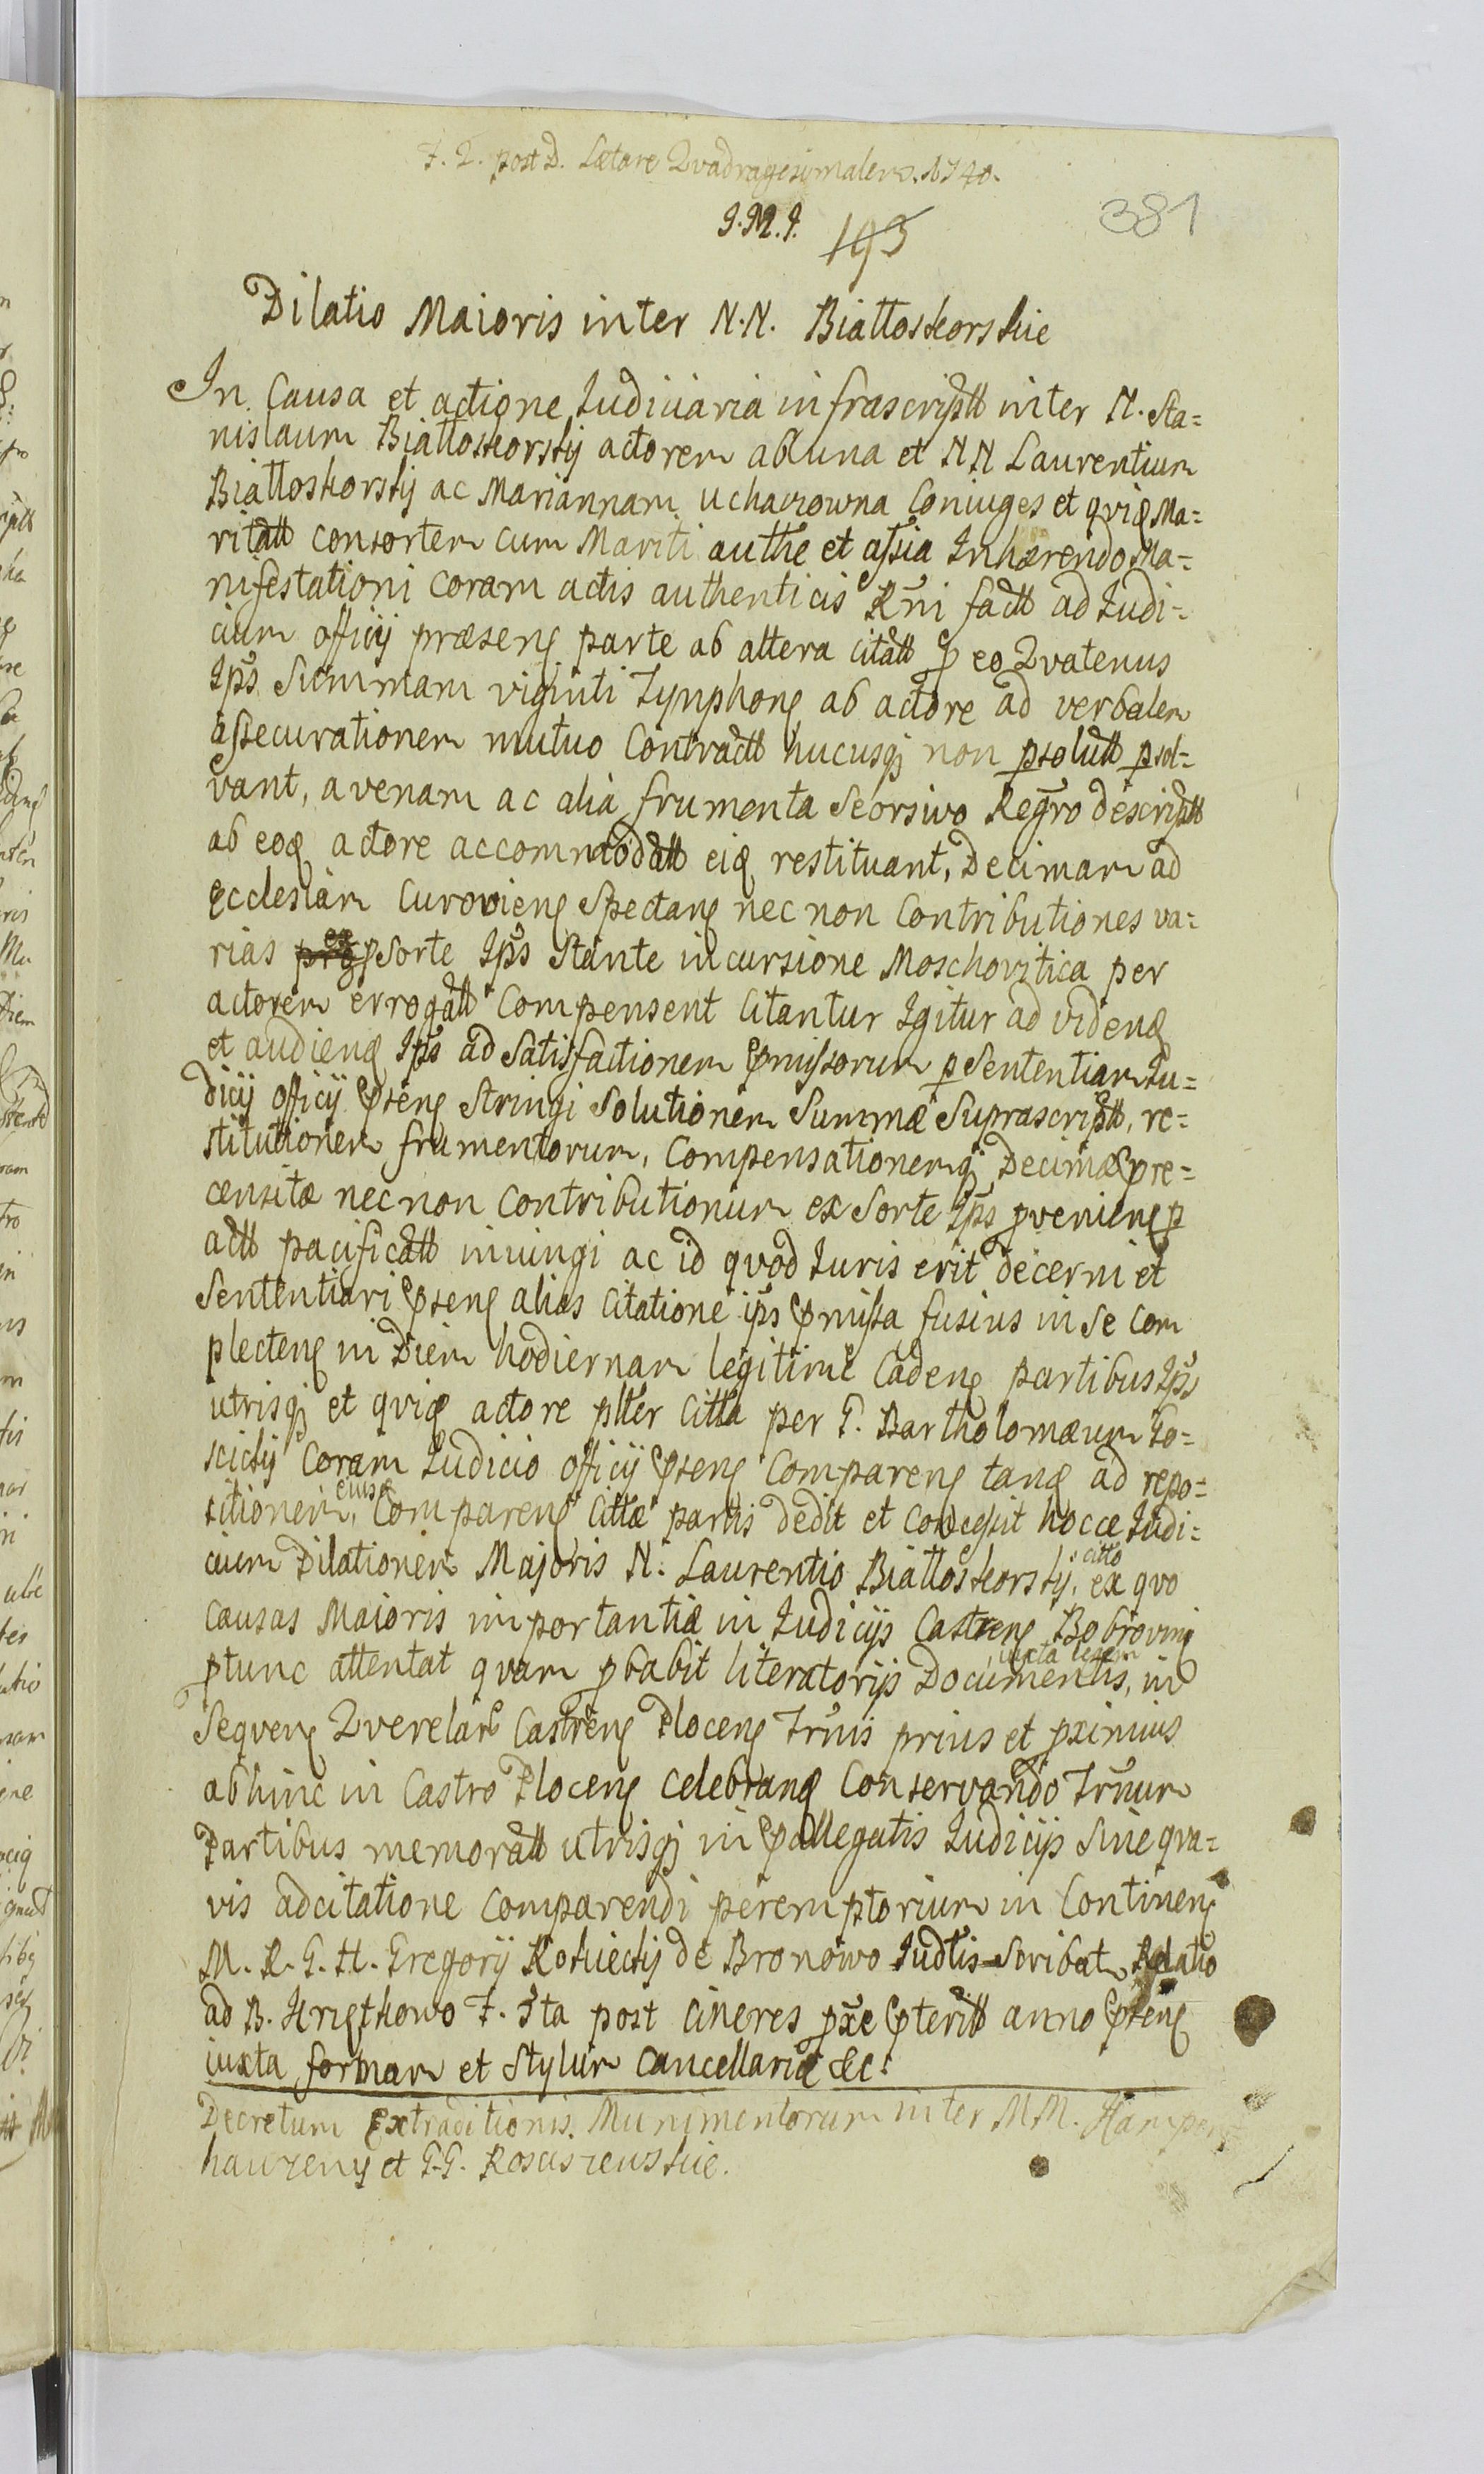 F. 2. post D. Lætare Qvadragesimalem. 1740.
J.M.J.
193
381
Dilatio Maioris inter N.N. Białłoskorskie
In Causa et actione Judiciaria infrascriptt inter N. Sta=
nislaum Białłoskorskij actorem ab una et NN Laurentium
Białłoskorskij ac Mariannam Uchaczowna Coniuges et qvidē Ma=
ritatt consortem cum Mariti authe et assia Inhærendo Ma=
nifestationi coram actis authenticis Rn̄i factt ad Judi=
cium officij præsenē parte ab altera citatt p eo Qvatenus
Ips̄ Summam viginti Tymphonē ab actore ad verbalem
assecurationem mutuo Contractt hucusqj non psolutt psol=
vant, avenam ac alia frumenta Seorsivo Regr̄o descriptt
ab eodē actore accommodatt eidē restituant, Decimam ad
Ecclesiam Curovienē Spectanē nec non Contributiones va=
rias ex Sorte Ips̄ Stante incursione Moschovitica per
actorem errogatt Compensent Citantur Igitur ad videndē
et audiendē Ips̄ ad Satisfactionem pmissorum p Sententiam Ju=
dicij officij psenē Stringi Solutionem Summæ Suprascriptt, re=
stitutionem frumentorum, Compensationemqj Decimæ pre=
censitæ nec non Contributionum ex Sorte Ips̄ pvenienē p
actt pacificatt iniungi ac id qvod Juris erit decerni et
Sententiari psenē alias Citatione ips̄ pmissa fusius in Se Com
plectenē in Diem hodiernam legitime Cadenē partibus Ips̄
utrisqj et qvidē actore plter Citta per G. Bartholomæum Go=
scickij Coram Judicio officij psenē Comparenē tandē ad repo=
sitionem, eiusdē Comparenē Cittæ partis dedit et Concessit hocce Judi=
cium Dilationem Majoris N. Laurentio Białłoskorskij, citto ex qvo
Causas Maioris importantiæ in Judicijs Castrenē Bobrovinē
ptunc attentat qvam pbabit literatorijs Documentis, iuxta legem in
Seqvenē Qverelarē Castrenē Plocenē Trn̄is prius et pximius
abhinc in Castro Plocenē celebrandē Conservando Trn̄um
Partibus memoratt utrisqj in pallegatis Judicijs Sine qva=
vis adcitatione comparendi peremptorium in Continenē
M. R. G. H. Gregorij Kotiickij de Bronowo Judtis Scribat Relatio
ad B. F. 5ta post Cineres px̄e pteritt anno psenē
iuxta formam et Stylum Cancellariæ &c.
Decretum Extraditionis Munimentorum inter MM.
hauzenē et G.G. Rosciszewskie.